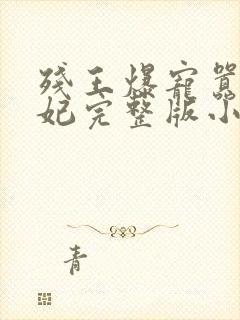 残王爆宠嚣
妃完整版小
青